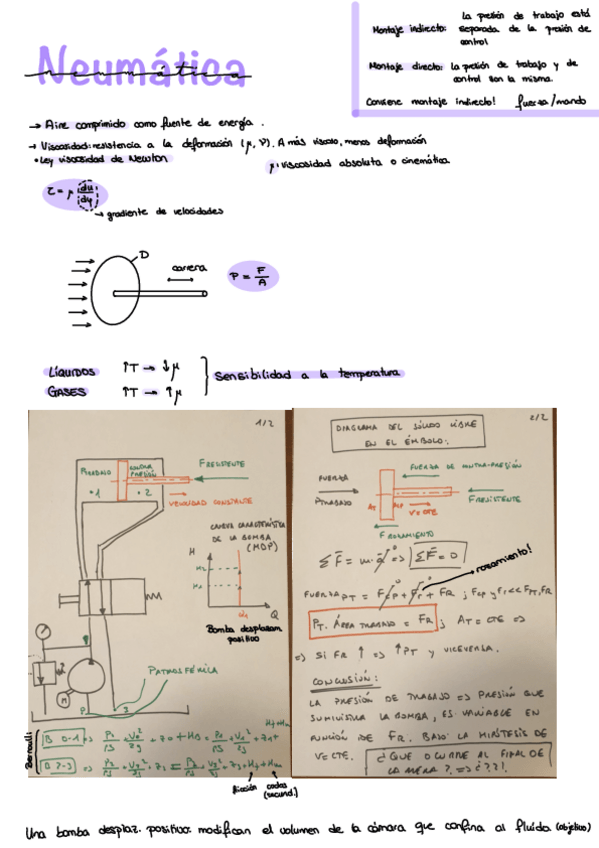 La presión de trabajo está
Montaje indirecto: separada de la presión de
control
Montaje directo: la presión de trabajo y de
control son la misma.
Conviene montaje indirecto! fuerza/mando
Neumática
neumática
→ Aire comprimido como fuente de energía.
→ Viscosidad: resistencia a la deformación (μ, ν). A más viscoso, menos deformación
• Ley viscosidad de Newton μ: viscosidad absoluta o cinemática
τ = μ du/dy
→ gradiente de velocidades
D
carrera
P = F/A
LÍQUIDOS ↑T → ↓μ
GASES ↑T → ↑μ
Sensibilidad a la temperatura
1/2
PTRABAJO CONTRA PRESIÓN
FRESISTENTE
•1 •2
VELOCIDAD CONSTANTE
CURVA CARACTERÍSTICA
DE LA BOMBA
(HDP)
H
H2
Q1 Q
Bomba desplazam
positivo
M
PATMOSFÉRICA
3
Bernoulli:
B 0-1 => P0/ρg + V0²/2g + z0 + HB = P1/ρg + V1²/2g + z1 + Hf+Hm
B 2-3 => P2/ρg + V2²/2g + z2 = P3/ρg + V3²/2g + z3 + Hf + Hm
fricción codos
(secund.)
2/2
DIAGRAMA DEL SÓLIDO LIBRE
EN EL ÉMBOLO:
FUERZA DE CONTRA-PRESIÓN
FUERZA
PTRABAJO
AT ACP V=CTE
FRESISTENTE
FROZAMIENTO
ΣF = m·a => ΣF = 0
rozamiento!
FUERZA PT = FCP + Fr + FR ; FCP y Fr << FPT, FR
PT. ÁREA TRABAJO = FR ; AT = CTE =>
=> SI FR ↑ => ↑PT y VICEVERSA.
CONCLUSIÓN:
LA PRESIÓN DE TRABAJO => PRESIÓN QUE
SUMINISTRA LA BOMBA, ES VARIABLE EN
FUNCIÓN DE FR. BAJO LA HIPÓTESIS DE
V=CTE. ¿QUE OCURRE AL FINAL DE
LA CARRERA? => ¿??!
Una bomba desplaz. positivo: modifican el volumen de la cámara que confina al fluido (objetivo)